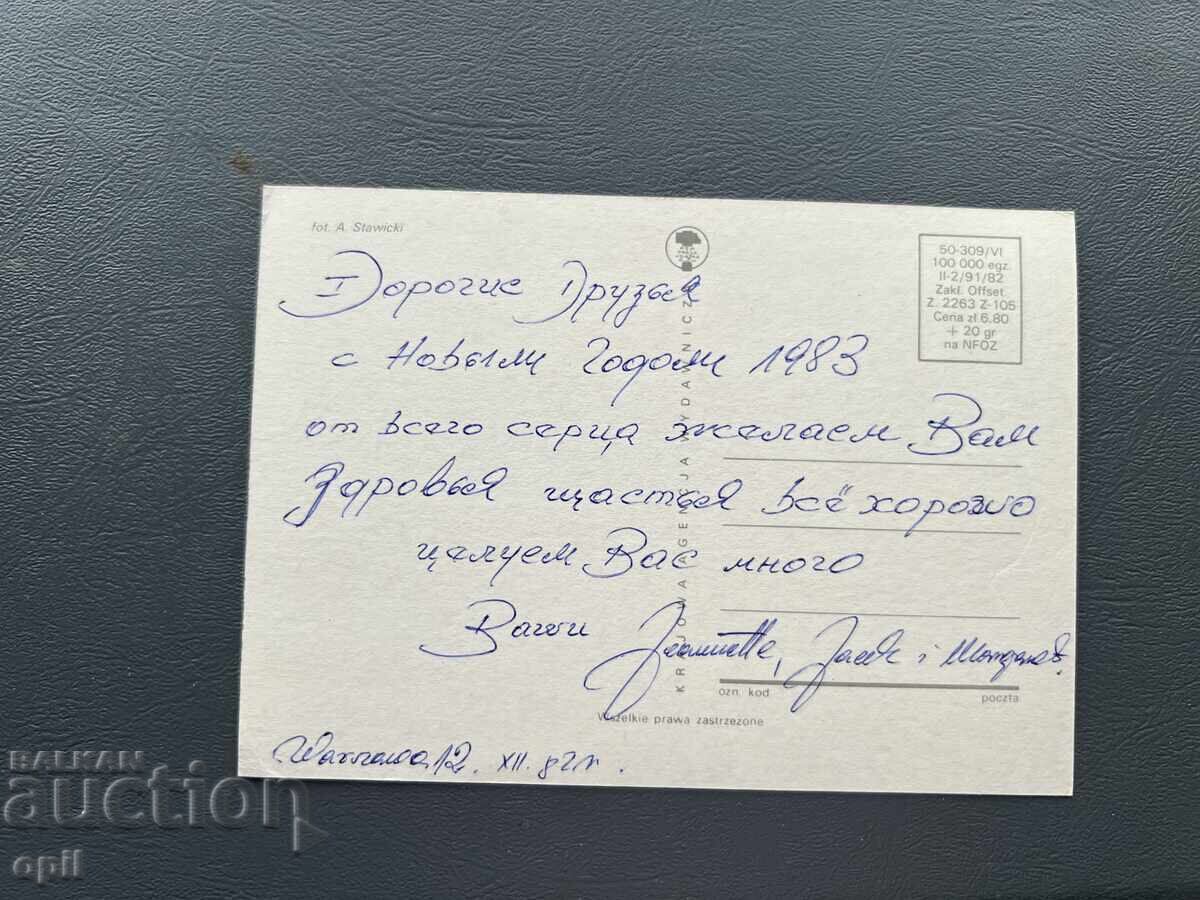 fot. A. Stawicki
50-309/VI
100 000 egz.
II-2/91/82
Zakł. Offset.
Z. 2263 Z-105
Cena zł 6.80
+ 20 gr
na NFOZ
Дорогие Друзья
с Новым Годом 1983
от всего серца желаем Вам
Здоровья щастья всё хорошо
целуем Вас много
Ваши Jeannette, Jacek i
KRAJOWA AGENCJA WYDAWNICZA
ozn. kod
poczta
Wszelkie prawa zastrzeżone
Warszawa 12. XII. 82 r.
BALKAN
auction
opil